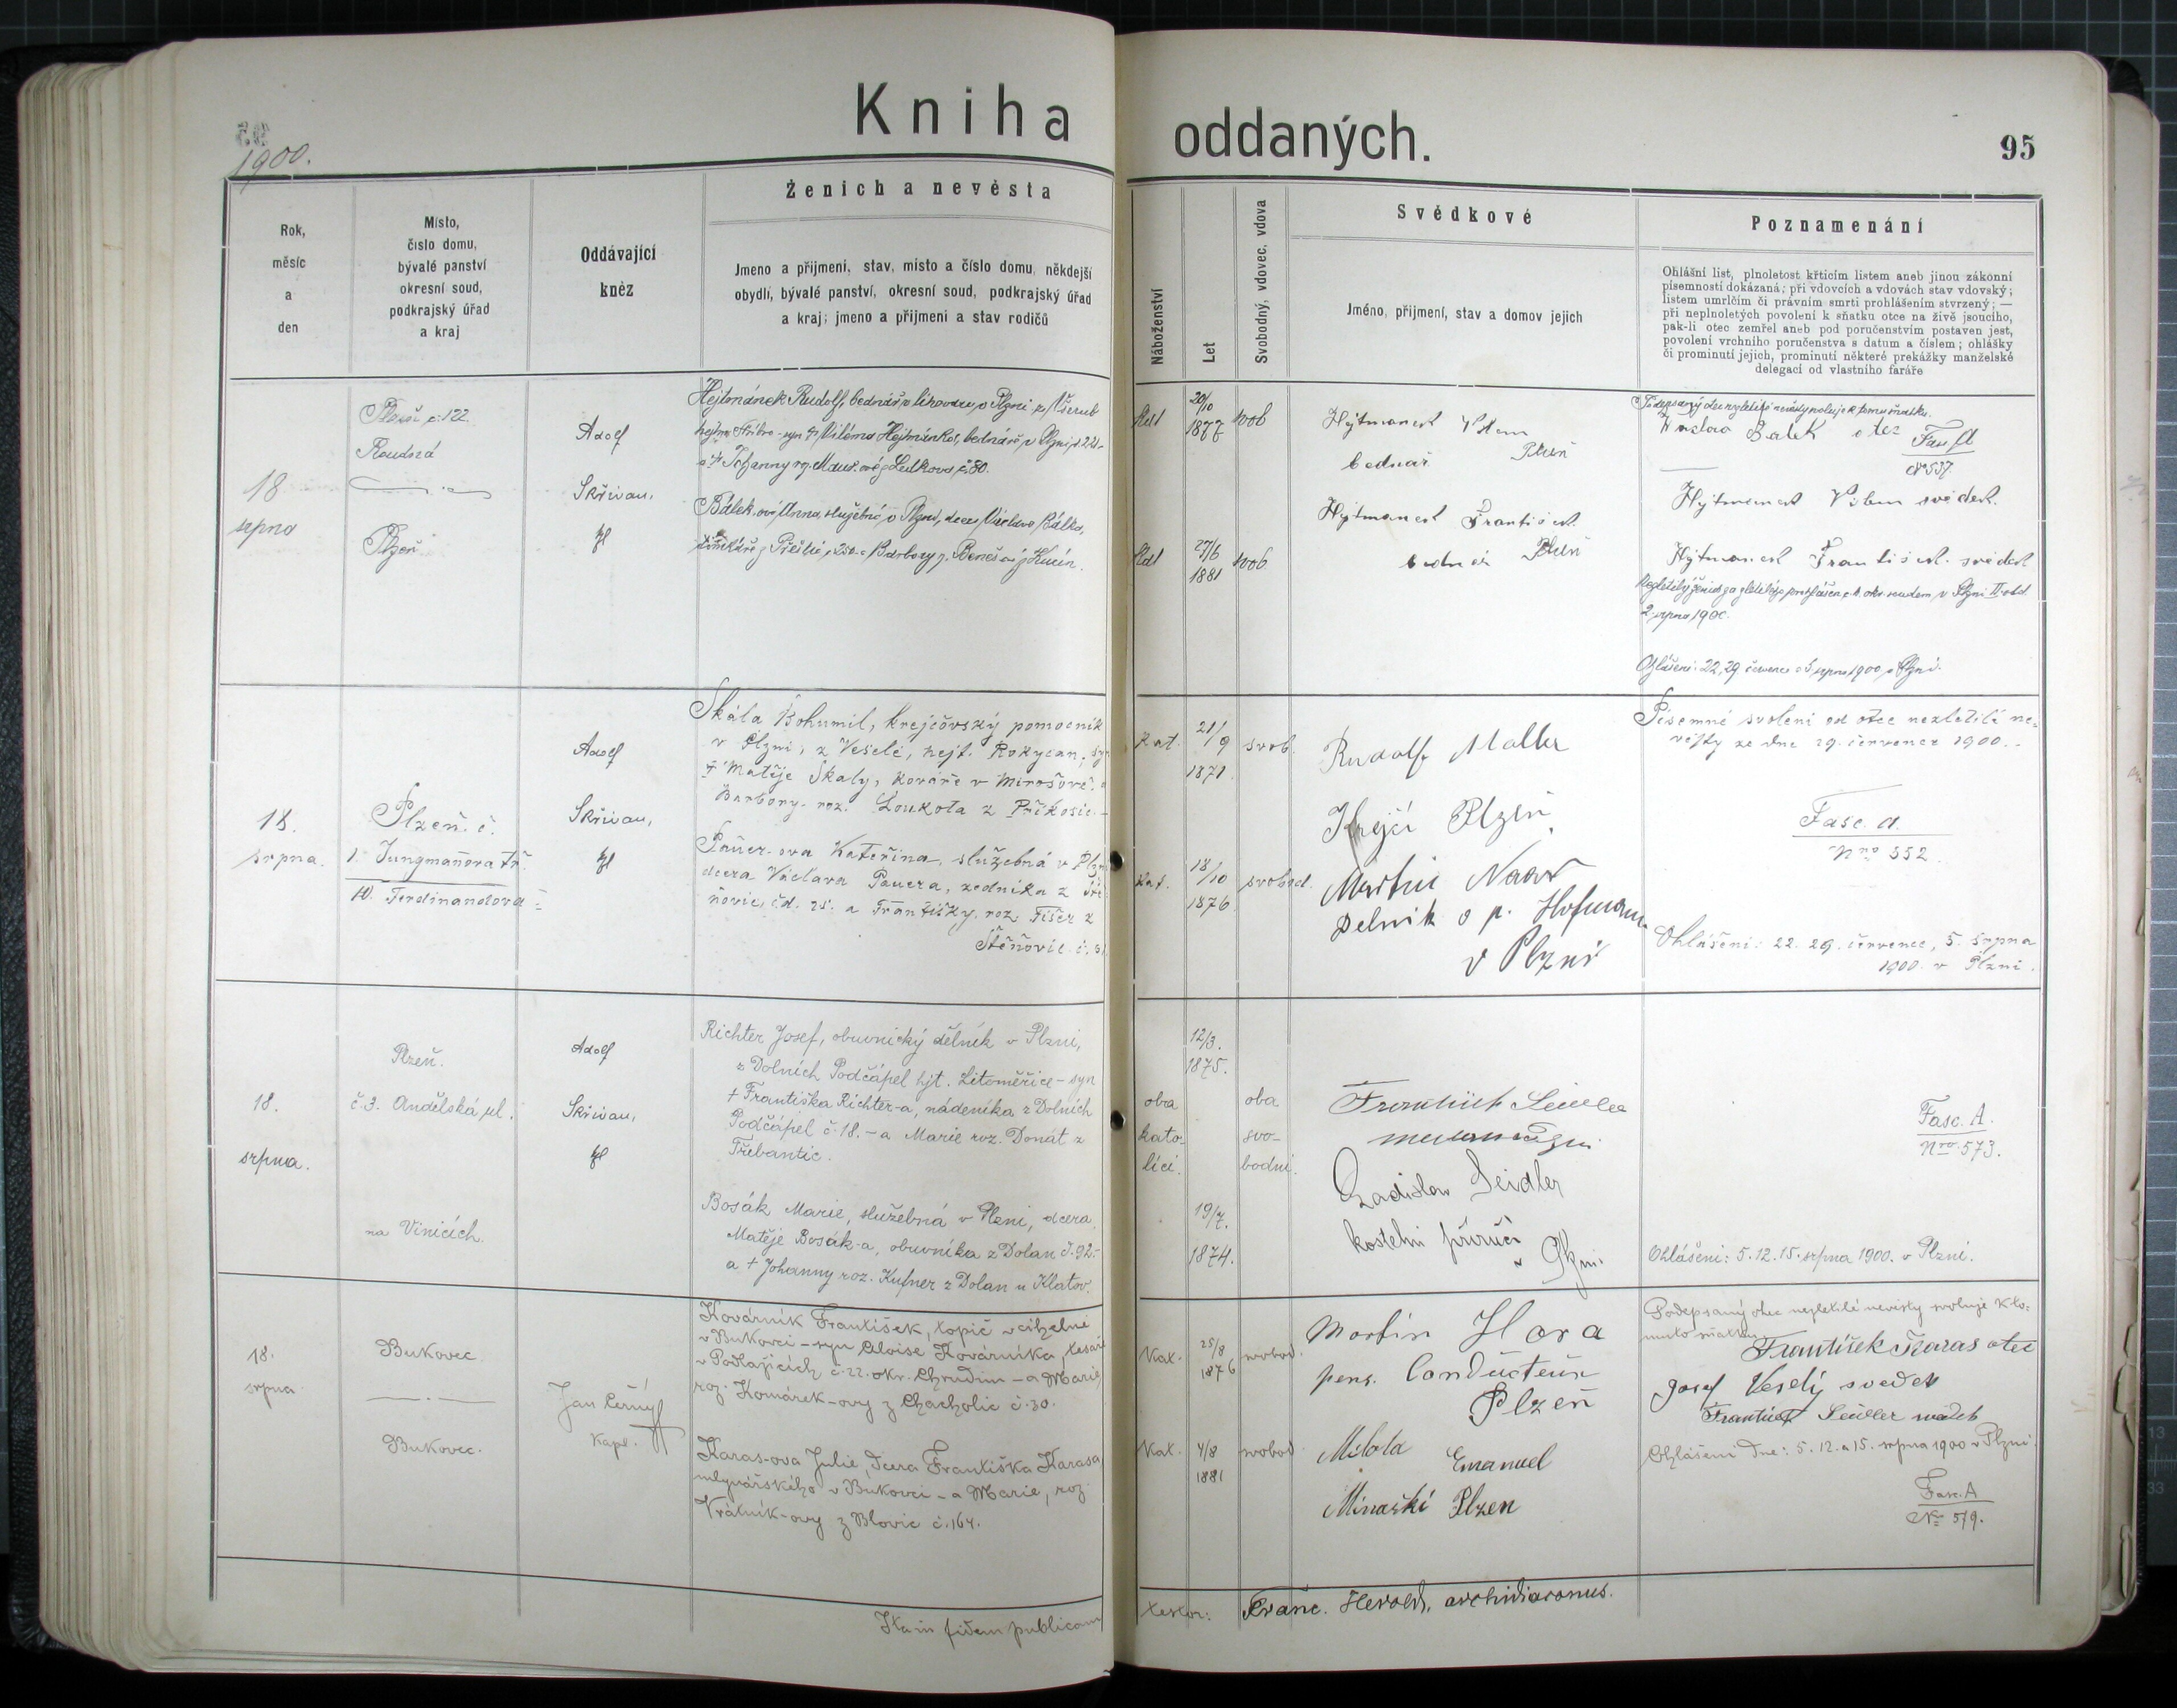 Kniha oddaných.
95
1900.
Rok,
měsíc
a
den
Místo,
číslo domu,
bývalé panství
okresní soud,
podkrajský úřad
a kraj
Oddávající
kněz
Ženich a nevěsta
Jmeno a přijmeni, stav, misto a číslo domu, někdejší
obydlí, bývalé panství, okresní soud, podkrajský úřad
a kraj; jmeno a přijmeni a stav rodičů
Náboženství
Let
Svobodný, vdovec, vdova
Svědkové
Jméno, přijmení, stav a domov jejich
Poznamenání
Ohlášní list, plnoletost křticím listem aneb jinou zákonní
písemností dokázaná; při vdovcích a vdovách stav vdovský;
listem umrlčím či právním smrti prohlášením stvrzený; —
při neplnoletých povolení k sňatku otce na živě jsoucího,
pak-li otec zemřel aneb pod poručenstvím postaven jest,
povolení vrchního poručenstva s datum a číslem; ohlášky
či prominutí jejich, prominutí některé prekážky manželské
delegací od vlastního faráře
18
srpna
Plzeň č. 122.
Roudná
Plzeň
Adolf
Skřivan,
Hejtmánek Rudolf, bednář v Plzni
hejtm. Stříbro - syn † Viléma Hejtmánka, bednáře v Plzni
Bálek-ová Anna, služebná v Plzni, dcera Václava Bálka,
z Přeštic a Barbory r. Beneš
20/10
1877
svob
27/6
1881
svob.
Hejtmanek Vilem
bednář Plzeň
Hejtmanek František
bednář Plzeň
Podepsaný otec nezletilé nevěsty svoluje k tomu sňatku.
Balek otec
Fas A
No 537
Hejtmanek Vilem svědek
Hejtmanek František svědek
2. srpna 1900.
Ohlášení: 22, 29. července a 5 srpna 1900 v Plzni.
18.
srpna.
Plzeň č.
1. Jungmanova tř.
10. Ferdinandova
Adolf
Skřivan,
Skála Bohumil, krejčovský pomocník
v Plzni, z Veselé, hejt. Rokycan, syn
† Matěje Skaly, kováře v Mirošově, a
Barbory roz. Loukota z Příkosic.
Pauer-ova Kateřina, služebná v Plzni
dcera Václava Pauera, zedníka z Ště-
ňovic, čd. 25. a Františky, roz. Fišer z
Štěňovic č. 3
kat.
21/9
1871.
svob.
kat.
18/10
1876.
svobod.
Rudolf Maller
Krejčí Plzeň
Martin Naar
Delnik o p. Hofmann
v Plzni
Písemné svoleni od otce nezletilé ne-
věsty ze dne 29. července 1900.
Fasc. A.
Nro 552.
Ohlášeni: 22. 29. července, 5. srpna
1900. v Plzni.
18.
srpna.
Plzeň.
č. 3. Andělská ul.
na Vinicích.
Adolf
Skřivan,
Richter Josef, obuvnický dělník v Plzni,
z Dolních Podčápel hjt. Litoměřice - syn
† Františka Richter-a, nádeníka z Dolních
Podčápel č. 18. - a Marie roz. Donát z
Třebantic.
Bosák Marie, služebná v Plzni, dcera
Matěje Bosák-a, obuvníka z Dolan č. 92.-
a † Johanny roz. Kufner z Dolan u Klatov.
12/3.
1875.
oba
kato-
líci.
oba
svo-
bodní.
19/7.
1874.
František Seidler
Ladislav Seidler
kostelní
v Plzni.
Fasc. A.
Nro. 573.
Ohlášeni: 5. 12. 15. srpna 1900. v Plzni.
18.
srpna.
Bukovec
Bukovec.
Jan Černý
Kapl.
Kovárník František, topič v cihelně
v Bukovci - syn Aloise Kovárníka, tesaře
v Podlažicích č. 22. okr. Chrudim - a Marie,
roz. Komárek-ovy z Chacholic č. 30.
Karas-ova Julie, dcera Františka Karasa
mlynářského v Bukovci - a Marie, roz.
Vrátník-ovy z Blovic č. 164.
Kat.
25/8
1876
svobod.
Kat.
4/8
1881
svobod
Martin Hora
pens. Conducteur
Plzeň
Milota Emanuel
Minařski Plzen
Podepsaný otec nezletilé nevěsty svoluje k to-
muto sňatku
František Karas otec
Josef Veselý svedek
František Seidler svědek
Ohlášeni dne: 5. 12. a 15. srpna 1900 v Plzni.
Fasc. A
No 579.
Ita in fidem publicam
testor: Franc. Herold, archidiaconus.